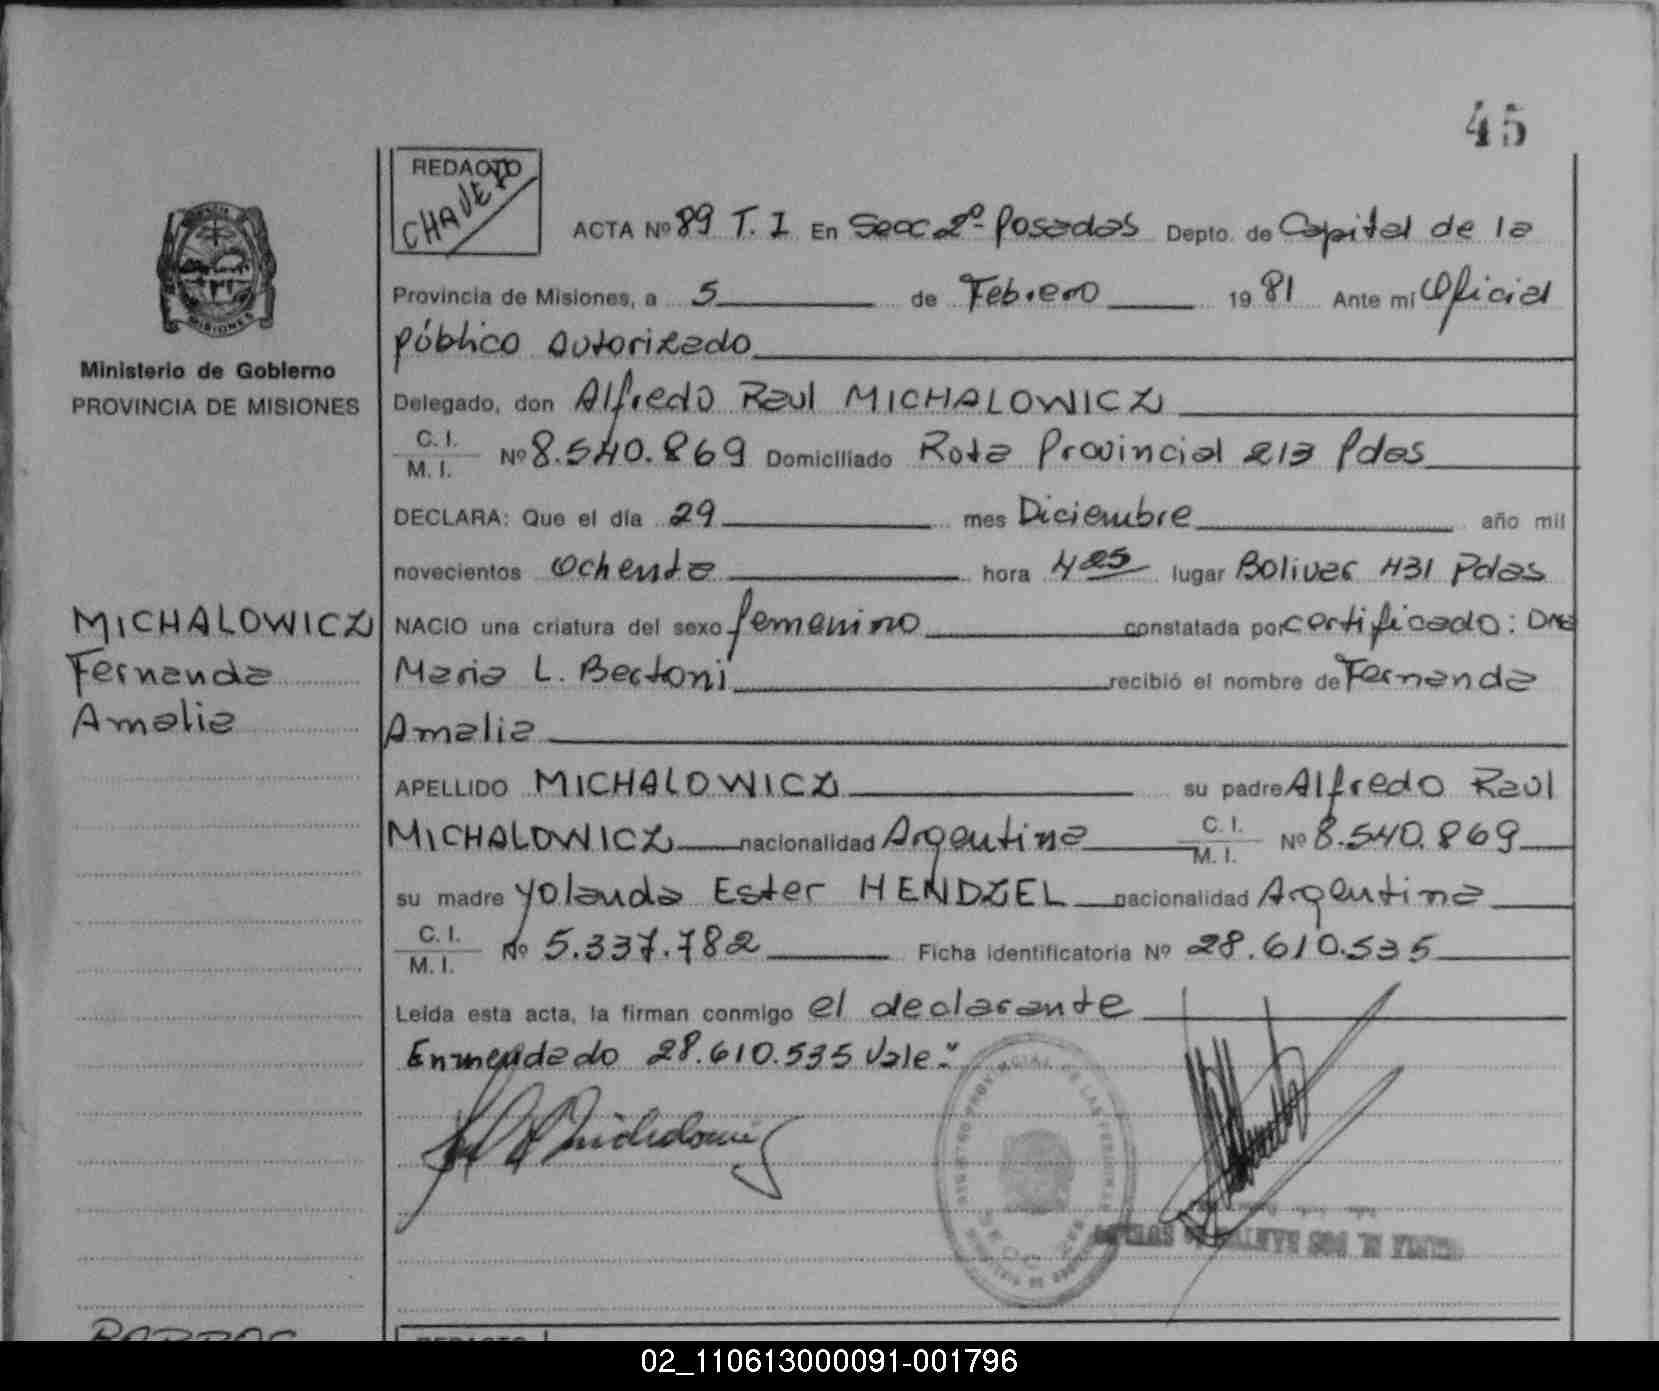 45
REDACTO
CHAVEZ
ACTA Nº 89 T. I En Secc 2º- Posadas Depto. de Capital de la
Provincia de Misiones, a 5 de Febrero 19 81 Ante mi Oficial
público autorizado
MISIONES
Ministerio de Gobierno
PROVINCIA DE MISIONES
Delegado, don Alfredo Raul MICHALOWICZ
C. I.
M. I. Nº 8.540.869 Domiciliado Rota Provincial 213 Pdas
DECLARA: Que el día 29 mes Diciembre año mil
novecientos Ochenta hora 4 25 lugar Bolivar 431 Pdas
MICHALOWICZ
Fernanda
Amalia
NACIO una criatura del sexo femenino constatada por certificado: Dra
Maria L. Bertoni recibió el nombre de Fernanda
Amalia
APELLIDO MICHALOWICZ su padre Alfredo Raul
MICHALOWICZ nacionalidad Argentina C. I. M. I. Nº 8.540.869
su madre Yolanda Ester HENDZEL nacionalidad Argentina
C. I.
M. I. Nº 5.337.782 Ficha identificatoria Nº 28.610.535
Leida esta acta, la firman conmigo el declarante
Enmendado 28.610.535 Vale:
REGISTRO PROVINCIAL DE LAS PERSONAS
REDACTO
02_110613000091-001796